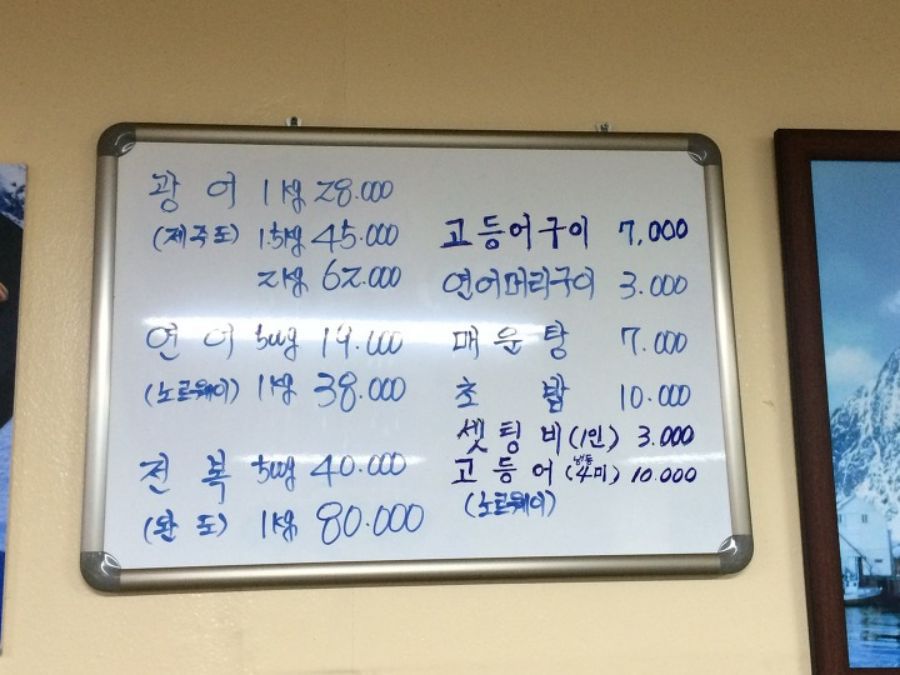 광어 1kg 28.000
(제주도) 1.5kg 45.000
2kg 62.000
연어 500g 19.000
(노르웨이) 1kg 38.000
전복 500g 40.000
(완도) 1kg 80.000
고등어구이 7,000
연어머리구이 3.000
매운탕 7.000
초밥 10.000
셋팅비(1인) 3.000
고등어(냉동 4미) 10.000
(노르웨이)